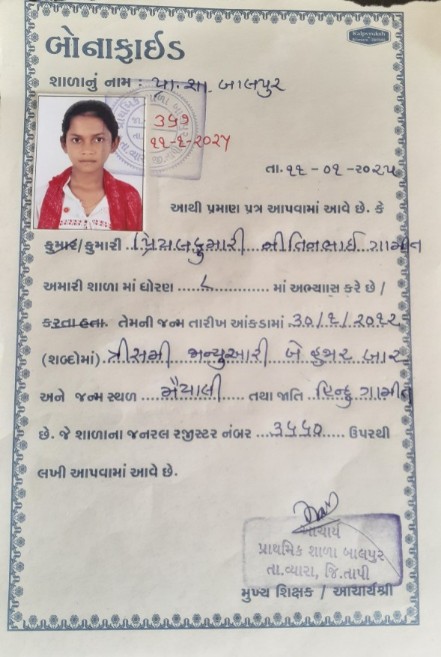 બોનાફાઈડ
શાળાનું નામ : પ્રા. શા. બાલપુર
૩૫૭
૧૧-૧-૨૦૨૫
તા. ૧૧ - ૦૧ - ૨૦૨૫
આથી પ્રમાણ પત્ર આપવામાં આવે છે. કે
કુમાર/કુમારી પ્રિયલકુમારી નીતિનભાઈ ગામીત
અમારી શાળા માં ધોરણ ૮ માં અભ્યાસ કરે છે /
કરતા હતા. તેમની જન્મ તારીખ આંકડામાં ૩૦/૧/૨૦૧૨
(શબ્દોમાં) ત્રીસમી જાન્યુઆરી બે હજાર બાર
અને જન્મ સ્થળ તથા જાતિ હિન્દુ ગામીત
છે. જે શાળાના જનરલ રજીસ્ટર નંબર ૩૫૫૦ ઉપરથી
લખી આપવામાં આવે છે.
આચાર્ય
પ્રાથમિક શાળા બાલપુર
તા.વ્યારા, જિ.તાપી
મુખ્ય શિક્ષક / આચાર્યશ્રી